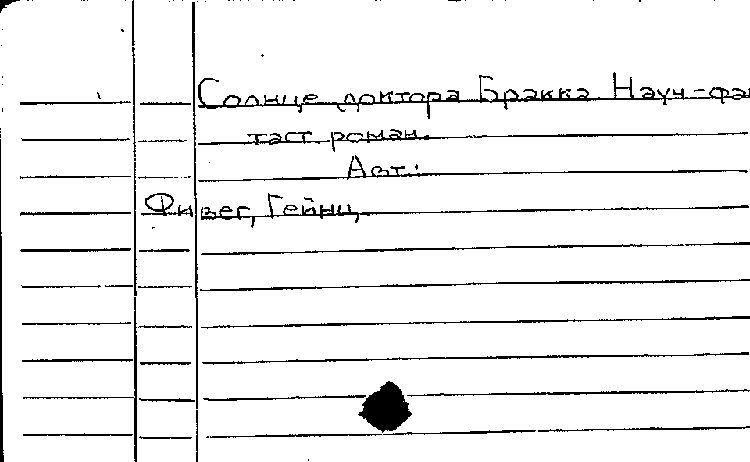 Солнце доктора Бракка Науч-фан
таст роман.
Авт.:
Фивег, Гейнц.